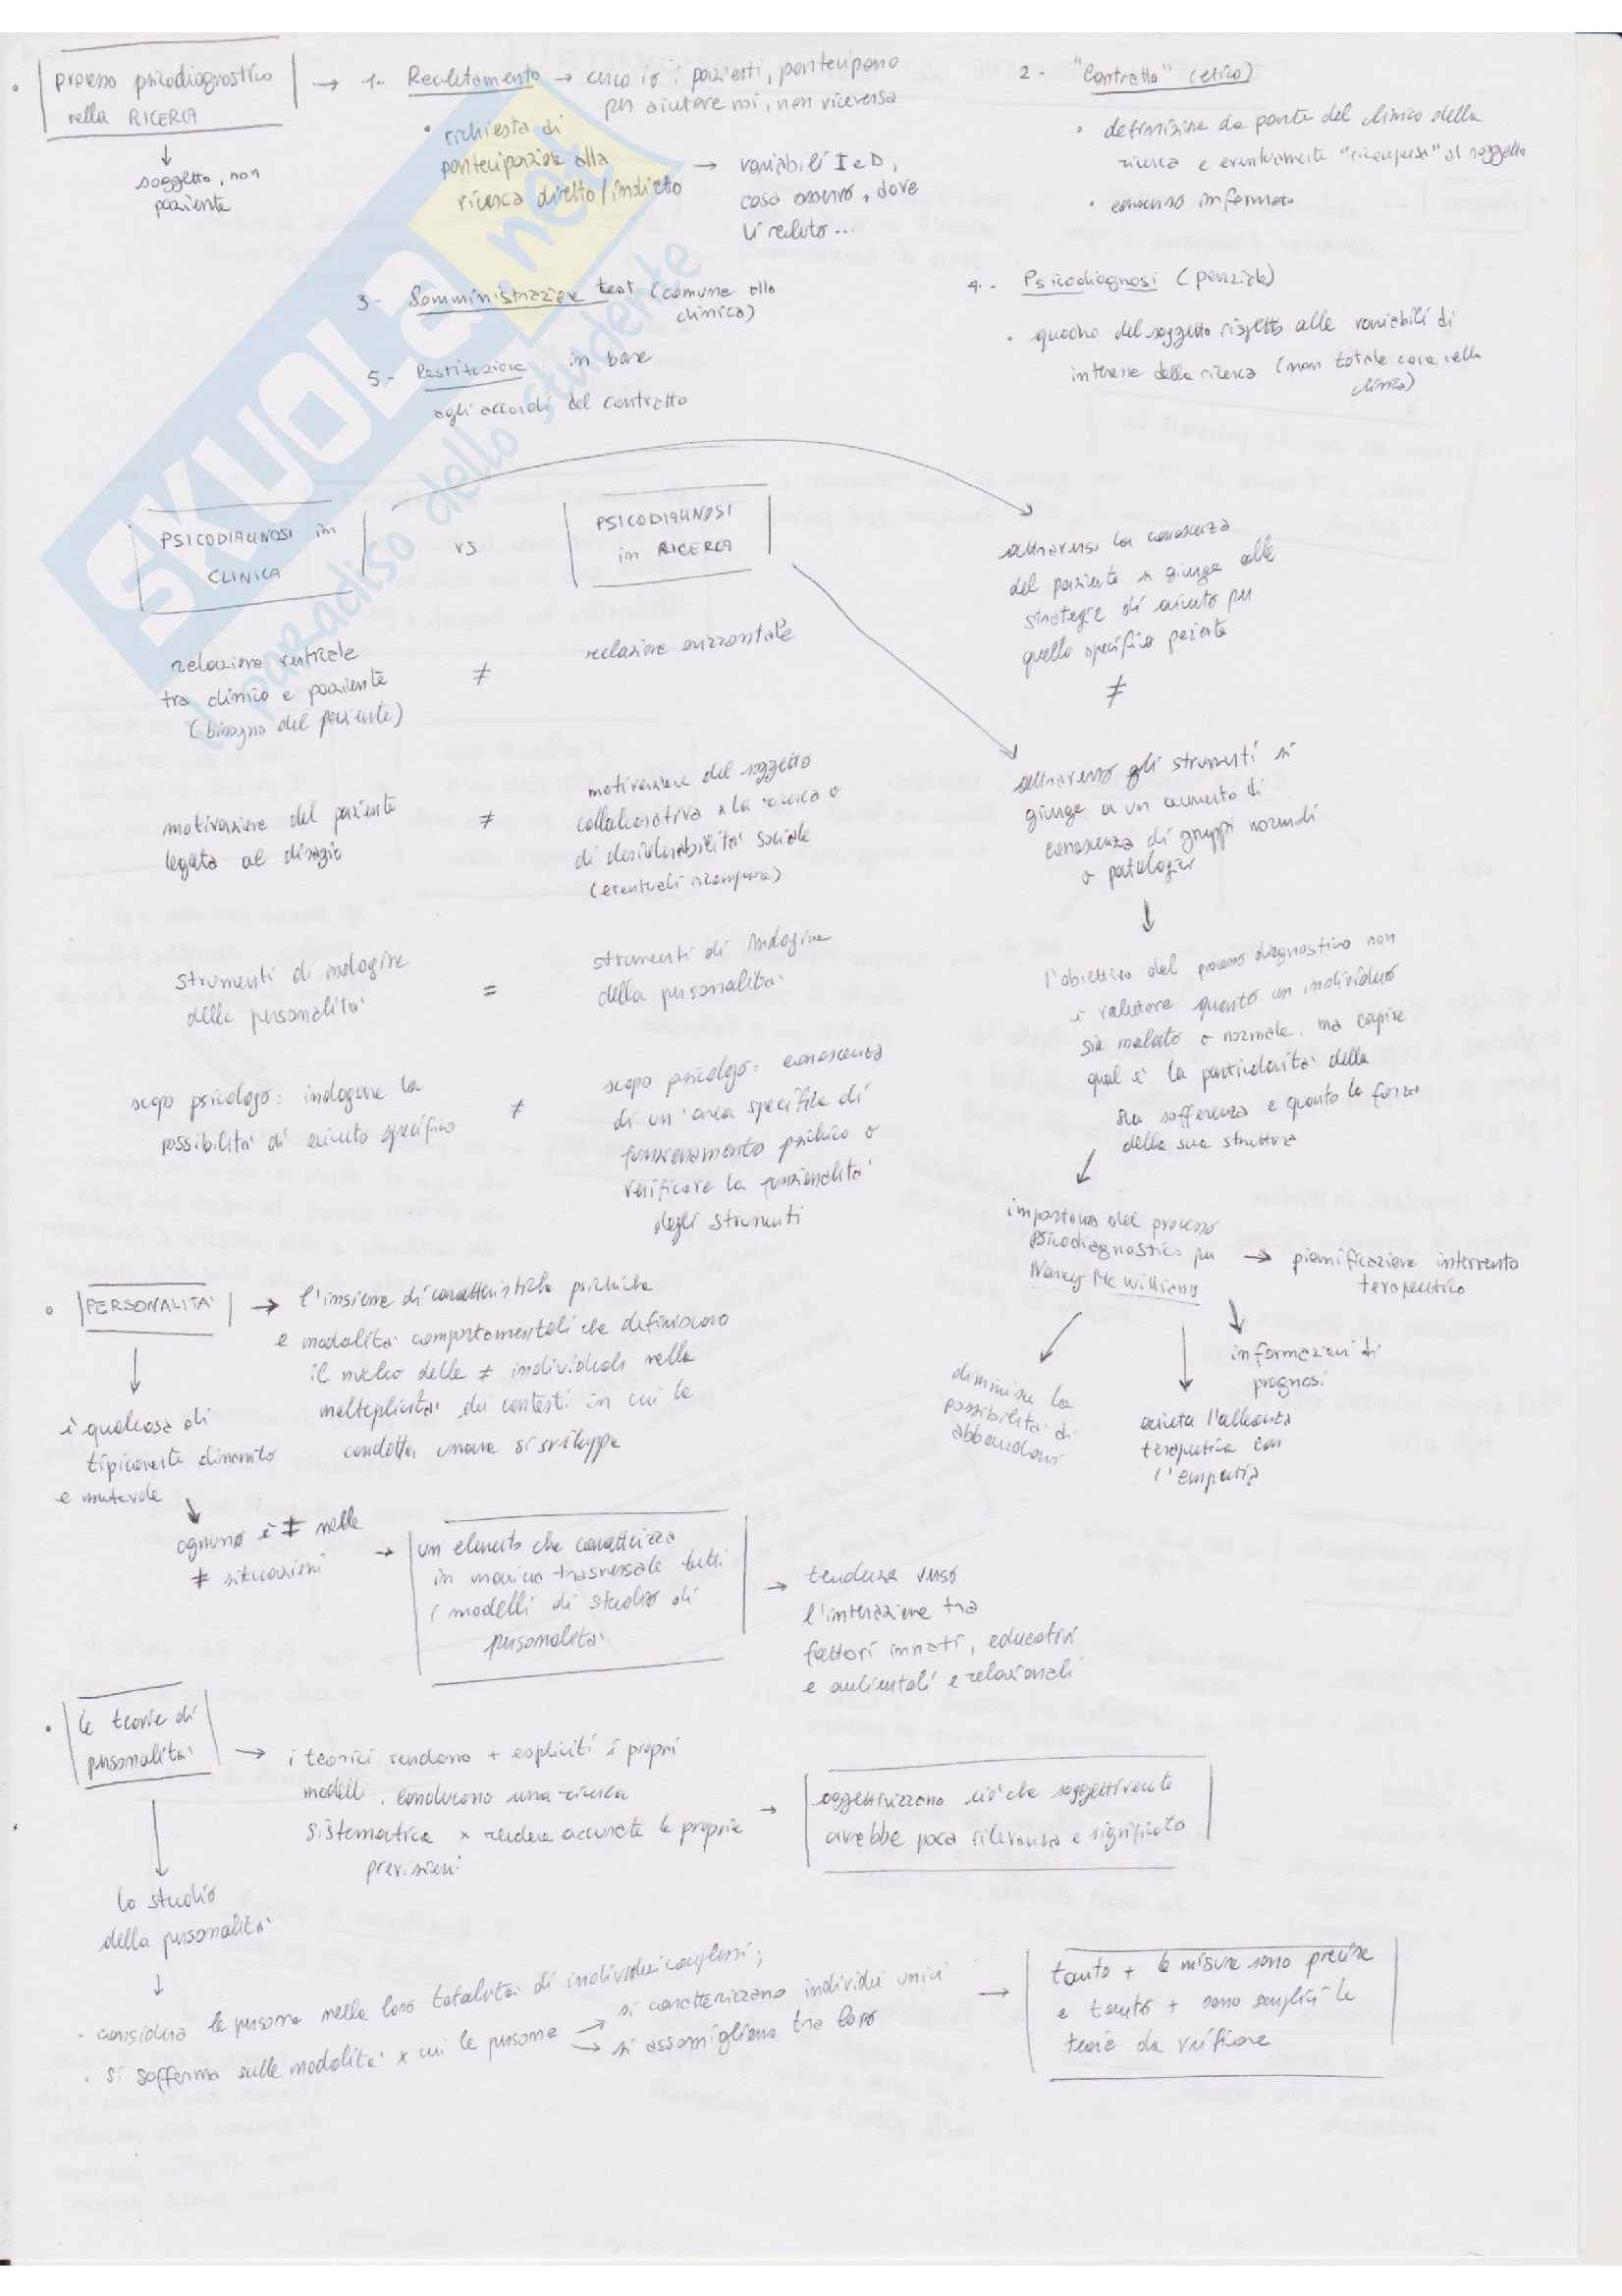 processo psicodiagnostico
nella RICERCA
soggetto, non
paziente
1- Reclutamento → cerco io i pazienti, partecipano
per aiutare noi, non viceversa
• richiesta di
partecipazione alla
ricerca diretto/indiretto
→ variabili I e D,
cosa osservo, dove
li recluto...
2- "Contratto" (etico)
• definizione da parte del clinico della
ricerca e eventualmente "ricompensa" al soggetto
• consenso informato
3- Somministrazione test (comune alla
clinica)
4.- Psicodiagnosi (parziale)
• quadro del soggetto rispetto alle variabili di
interesse della ricerca (non totale come nella
clinica)
5.- Restituzione in base
agli accordi del contratto
SKUOLA.net
il paradiso dello studente
PSICODIAGNOSI in
CLINICA
vs
PSICODIAGNOSI
in RICERCA
relazione verticale
tra clinico e paziente
(bisogno del paziente)
≠
relazione orizzontale
motivazione del paziente
legata al disagio
≠
motivazione del soggetto
collaborativa x la ricerca o
di desiderabilità sociale
(eventuali ricompense)
strumenti di indagine
della personalità
=
strumenti di indagine
della personalità
scopo psicologo: indagare la
possibilità di aiuto specifico
≠
scopo psicologo: conoscenza
di un'area specifica di
funzionamento psichico o
verificare la funzionalità
degli strumenti
attraverso la conoscenza
del paziente si giunge alle
strategie di aiuto per
quello specifico paziente
≠
attraverso gli strumenti si
giunge a un aumento di
conoscenza di gruppi normali
o patologici
l'obiettivo del processo diagnostico non
è valutare quanto un individuo
sia malato o normale, ma capire
qual è la particolarità della
sua sofferenza e quanto la forza
della sua struttura
importanza del processo
psicodiagnostico per
Nancy Mc Williams
→ pianificazione intervento
terapeutico
informazioni di
prognosi
aiuta l'alleanza
terapeutica con
l'empatia
diminuisce la
possibilità di
abbandoni
• PERSONALITA' → l'insieme di caratteristiche psichiche
e modalità comportamentali che definiscono
il nucleo delle ≠ individuali nella
molteplicità dei contesti in cui la
condotta umana si sviluppa
è qualcosa di
tipicamente dinamico
e mutevole
ognuno è ≠ nelle
≠ situazioni
→ un elemento che caratterizza
in maniera trasversale tutti
i modelli di studio di
personalità
→ tendenza verso
l'interazione tra
fattori innati, educativi
e ambientali e relazionali
• le teorie di
personalità
→ i teorici rendono + espliciti i propri
modelli, conducono una ricerca
sistematica x rendere accurate le proprie
previsioni
→ oggettivizzano ciò che soggettivamente
avrebbe poca rilevanza e significato
lo studio
della personalità
↓
- considera le persone nella loro totalità di individui complessi;
• si sofferma sulle modalità x cui le persone → si caratterizzano individui unici
→ si assomigliano tra loro
→ tanto + le misure sono precise
e tanto + sono semplici le
teorie da verificare